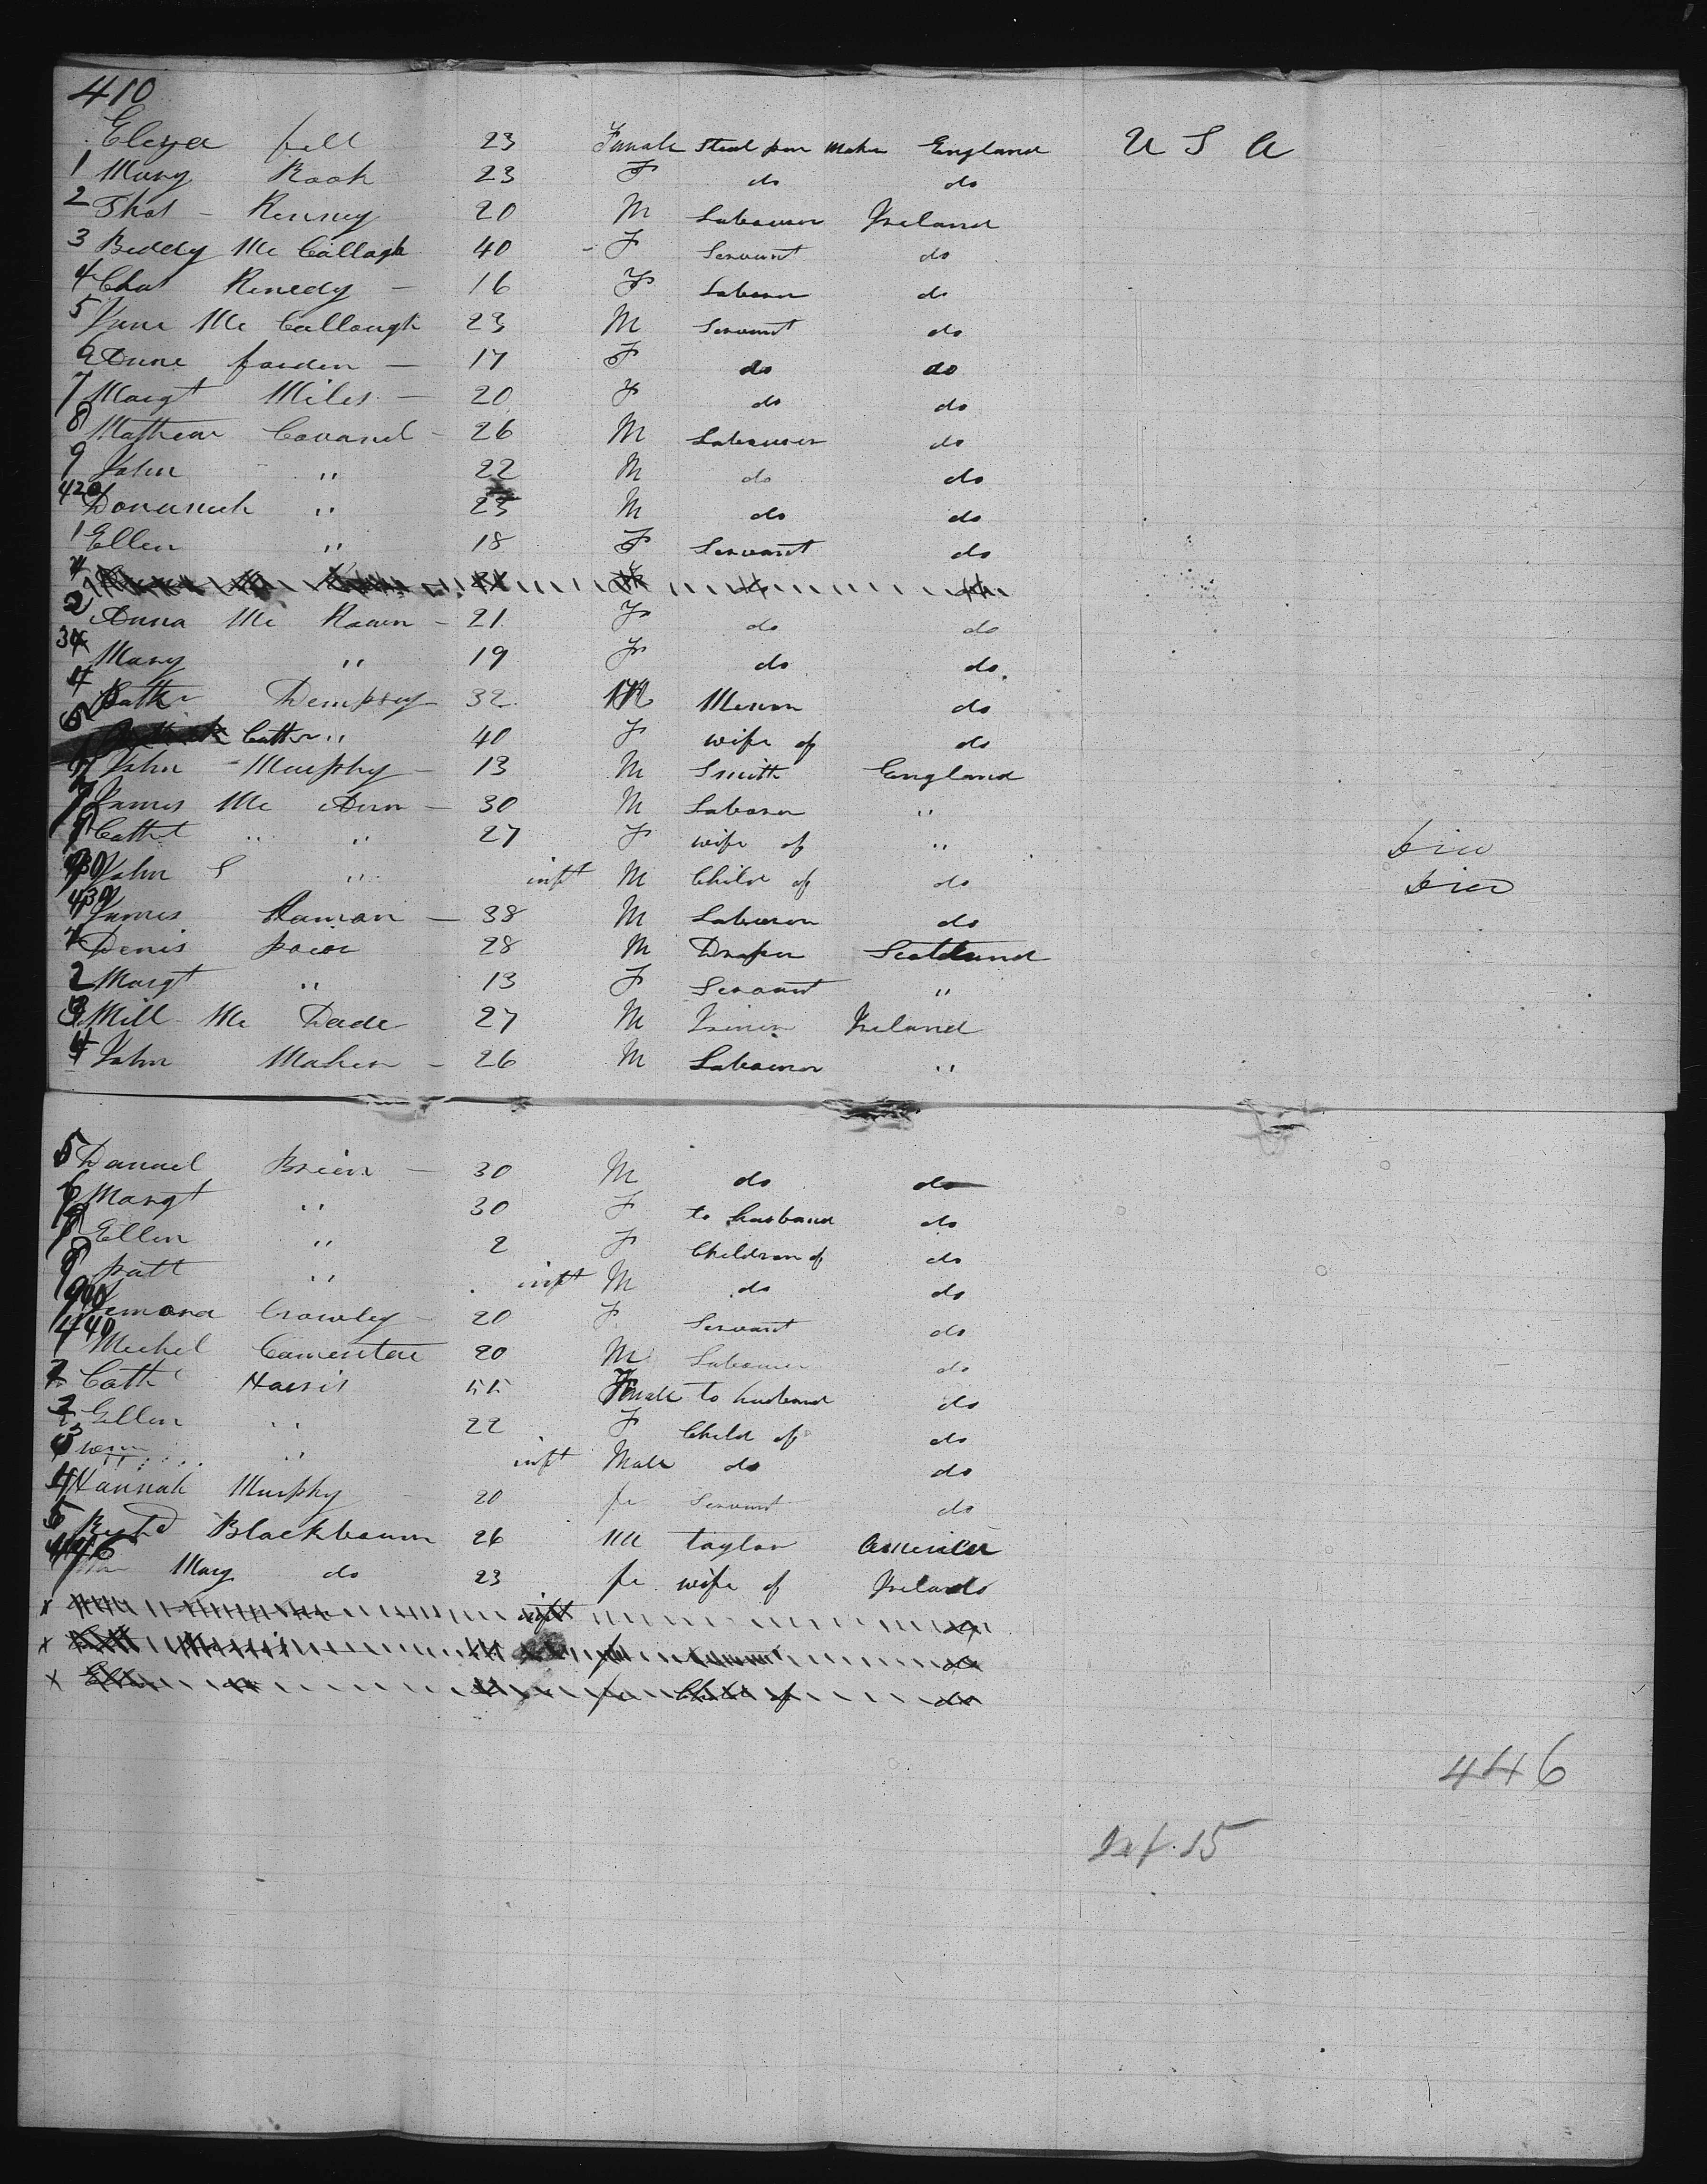 410
Eleza fell 23 Female Steel pen maker England U S A
1 Mary Rook 23 F do do
2 Thos - Kenney 20 M Labourer Ireland
3 Biddy Mc Callagh 40 - F Servant do
4 Chas Kenedy - 16 F Laborer do
5 Jane Mc Callough 23 M Servant do
6 Anne farden - 17 F do do
7 Margt Miles - 20 F do do
8 Mathew Cavanel - 26 M Labourer do
9 John " 22 M do do
420 " 23 M do do
1 Ellen " 18 F Servant do
2 Anna Mc Kown - 21 F do do
3 Mary " 19 F do do
4 Patk Dempsey 32 M Meson do
5 Cath " 40 F wife of do
John - Murphy - 13 M Smith England
7 James Mc Ann - 30 M Laborer "
Catht " " 27 F wife of " Died
John S " inft M Child of do Died
430 James Haman - 38 M Labourer do
Denis poior 28 M Draper Scotland
2 Margt " 13 F Servant "
3 Mill Mc Dade 27 M Ireland
4 John Maher - 26 M Labourer "
5 Danuel Brien - 30 M do do
6 Margt " 30 F to husband do
7 Ellen " 2 F Children of do
8 patt " inft M do do
9 Crowley - 20 F Servant do
440 Michel 20 M Labourer do
1 Cath Harris 55 Female to husband do
2 Ellen " 22 F Child of do
3 " inft Male do do
4 Hannah Murphy - 20 fe Servant do
5 Richd Blackbourn 26 M taylor America
446 Mary do 23 fe wife of Irelands
x inft do
x do
x Ellen do fe Child of do
446
Inf. 15